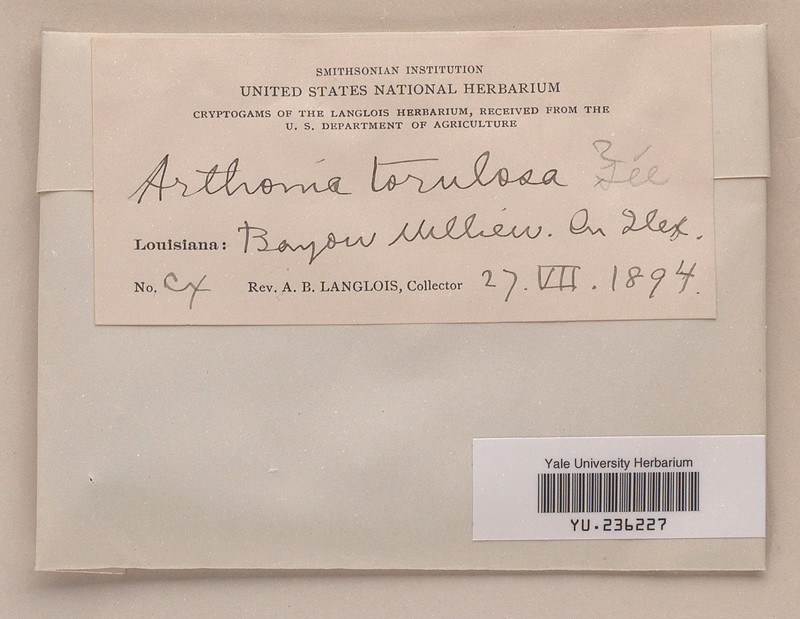 SMITHSONIAN INSTITUTION
UNITED STATES NATIONAL HERBARIUM
CRYPTOGAMS OF THE LANGLOIS HERBARIUM, RECEIVED FROM THE
U. S. DEPARTMENT OF AGRICULTURE
Arthonia torulosa Fée
Louisiana: Bayou. On Ilex.
No. cx Rev. A. B. LANGLOIS, Collector 27. VII. 1894.
Yale University Herbarium
YU.236227